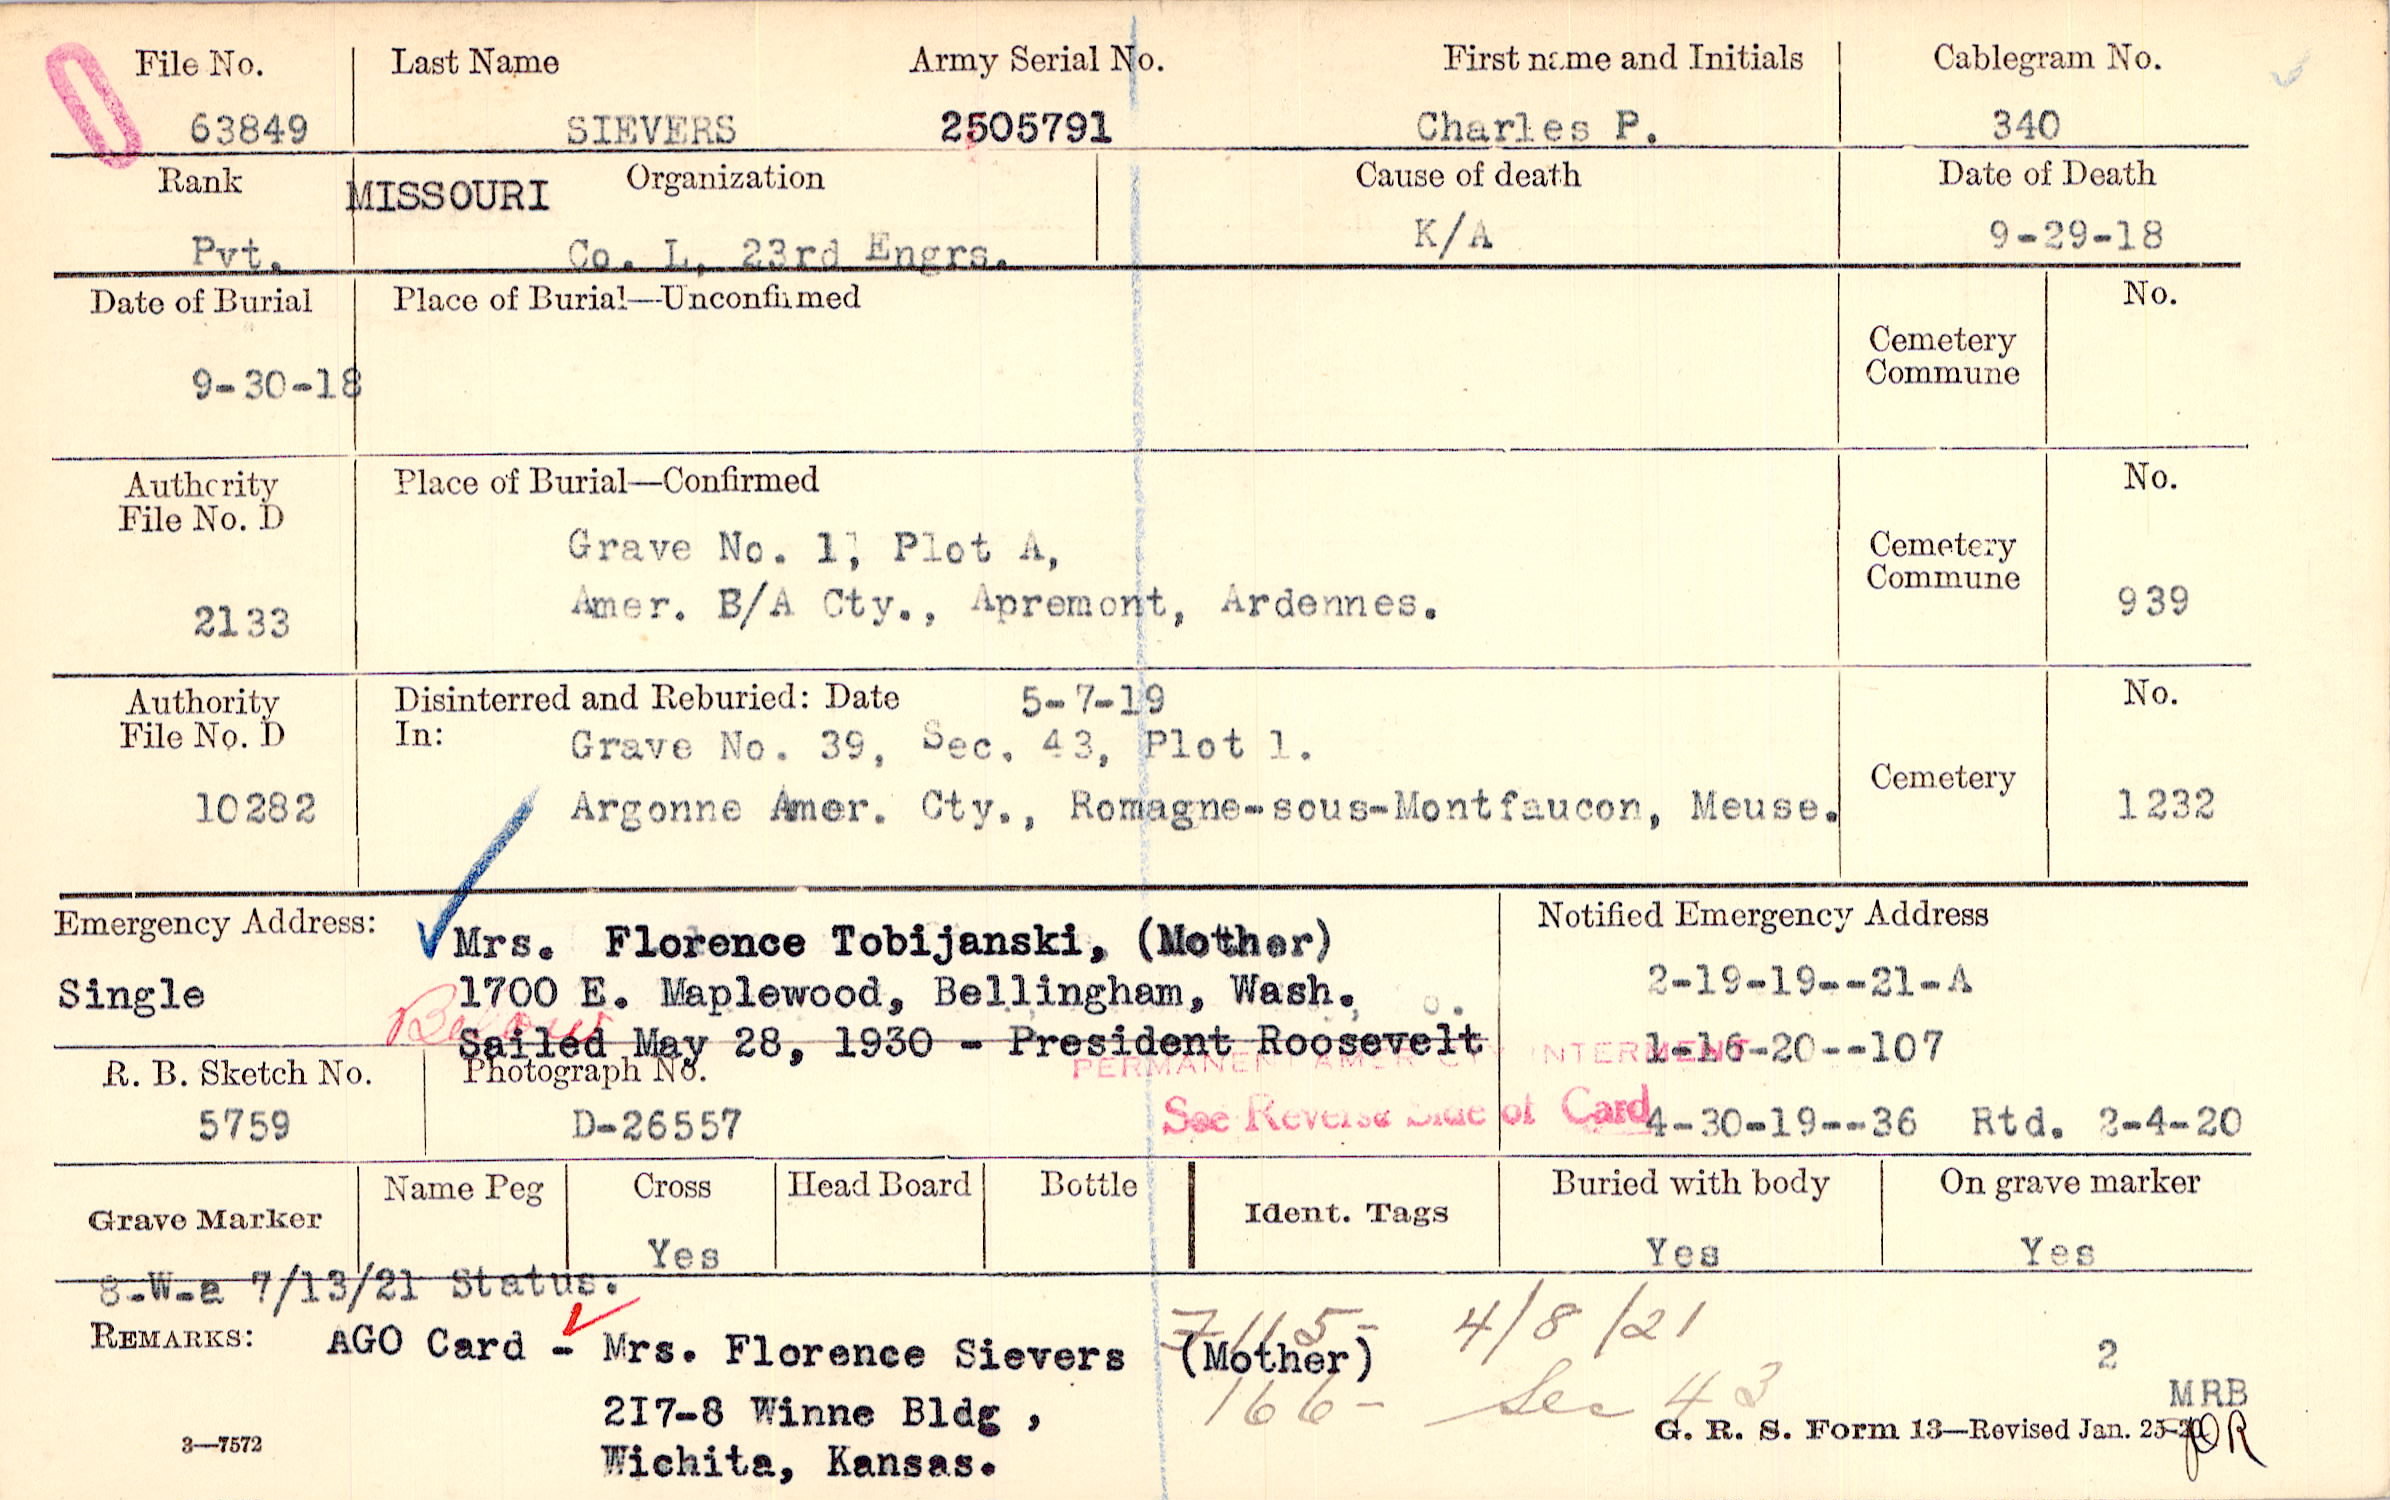 File No. Last Name Army Serial No. First name and Initials Cablegram No.
63849 SIEVERS 2505791 Charles P. 340
Rank MISSOURI Organization Cause of death Date of Death
Pvt. Co. L, 23rd Engrs. K/A 9-29-18
Date of Burial Place of Burial—Unconfirmed Cemetery Commune No.
9-30-18
Authority File No. D Place of Burial—Confirmed No.
Grave No. 1, Plot A, Cemetery Commune
2133 Amer. B/A Cty., Apremont, Ardennes. 939
Authority File No. D Disinterred and Reburied: Date 5-7-19 No.
In: Grave No. 39, Sec. 43, Plot 1. Cemetery
10282 Argonne Amer. Cty., Romagne-sous-Montfaucon, Meuse. 1232
Emergency Address: Mrs. Florence Tobijanski, (Mother) Notified Emergency Address
Single 1700 E. Maplewood, Bellingham, Wash. 2-19-19--21-A
Sailed May 28, 1930 - President Roosevelt 1-16-20--107
PERMANENT AMER CTY INTERMENT
R. B. Sketch No. Photograph No.
5759 D-26557 See Reverse Side of Card 4-30-19--36 Rtd. 2-4-20
Grave Marker Name Peg Cross Head Board Bottle Ident. Tags Buried with body On grave marker
Yes Yes Yes
8-W-a 7/13/21 Status.
4/8/21
REMARKS: AGO Card - Mrs. Florence Sievers (Mother) 2
217-8 Winne Bldg , 166- Sec 43 MRB
3—7572 G. R. S. Form 13—Revised Jan. 25-20
Wichita, Kansas.